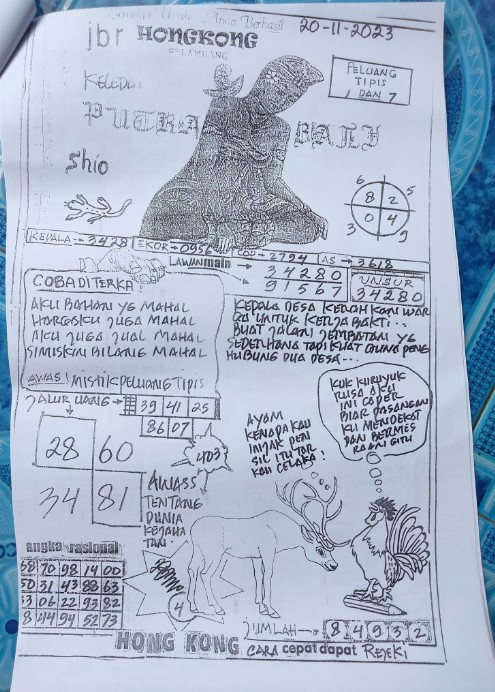 Anda Berhasil
20-11-2023
jbr HONGKONG
PELEMBANG
PELUANG
TIPIS
1 DAN 7
KELEDAI
PUTRA BALI
Shio
6 5
8 2
0 4
3 9
KEPALA → 3428 EKOR → 0956 COP → 2794 AS → 3618
LAWAN main
34280
91567
UNSUR
34280
COBA DITERKA
AKU BAHAN YG MAHAL
HARGAKU JUGA MAHAL
AKU JUGA JUAL MAHAL
SIMISKIN BILANG MAHAL
KEPALA DESA KERAHKAN WAR
GA UNTUK KERJA BAKTI..
BUAT JALAN JEMBATAN YG
SEDERHANA TAPI KUAT GUNA PENG
HUBUNG DUA DESA...
AWAS! MISTIK PELUANG TIPIS
JALUR UANG → 39 41 25
86 07
28 60
34 81
4D3?
AYAM
KENAPA KAU
INJAK PEN
SIL ITU
KAU CELAKA!
KUK KURUYUK
AKU
INI CAPER
BIAR PASANGAN
KU MENDEKAT
DAN BERMES
RAAN GITU
AWASS
TENTANG
DUNIA
KEJAHA
TAN
angka rasional
58 70 98 14 00
50 31 43 88 63
06 22 93 82
8 44 94 52 73
4
JUMLAH → 8 4 9 3 2
HONG KONG CARA cepat dapat REJEKI